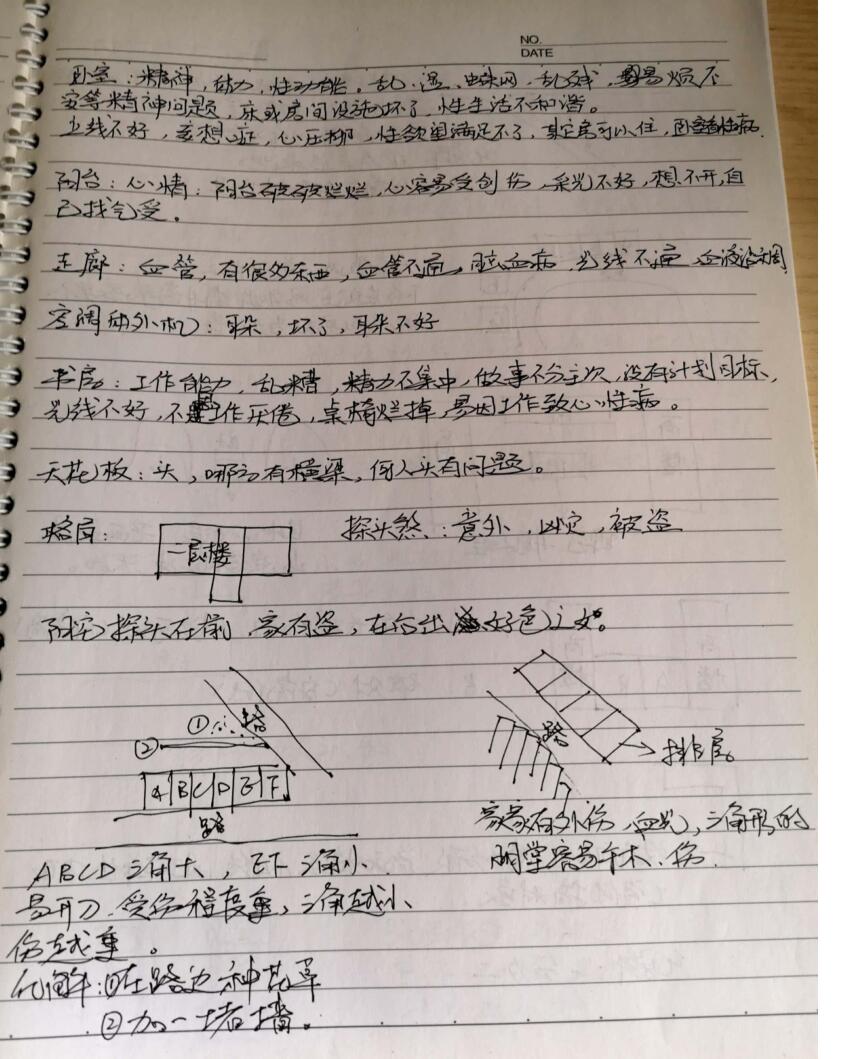 NO.
DATE
卧室：精神，体力，性功能。乱、湿、蜘蛛网、乱残，易烦不
安等精神问题，床或房间设施坏了，性生活不和谐。
光线不好，妄想症，心压抑，性欲望满足不了，其它房可以住，卧室有性病.
阳台：心情：阳台破破烂烂，心容易受创伤，采光不好，想不开，自
己找气受。
走廊：血管，有很多东西，血管不通，脑血病，光线不通，血液
空调的外机：耳朵，坏了，耳朵不好
书房：工作能力，乱糟，精力不集中，做事不分主次，没有计划目标，
光线不好，工作厌倦，桌椅烂掉，易因工作致心性病。
天花板：头，哪方有横梁，何人头有问题。
格局：
二层楼
探头煞：意外，凶灾，被盗
阳宅探头在前，家有盗，在后出好色之女。
① 路
②
A B C D E F
路
路
排屋
ABCD三角大，EF三角小.
易开刀、受伤程度重，三角越小、
伤越重。
化解：①在路边种花草
②加一堵墙。
家家有外伤、血光，三角形的
明堂容易手术、伤.